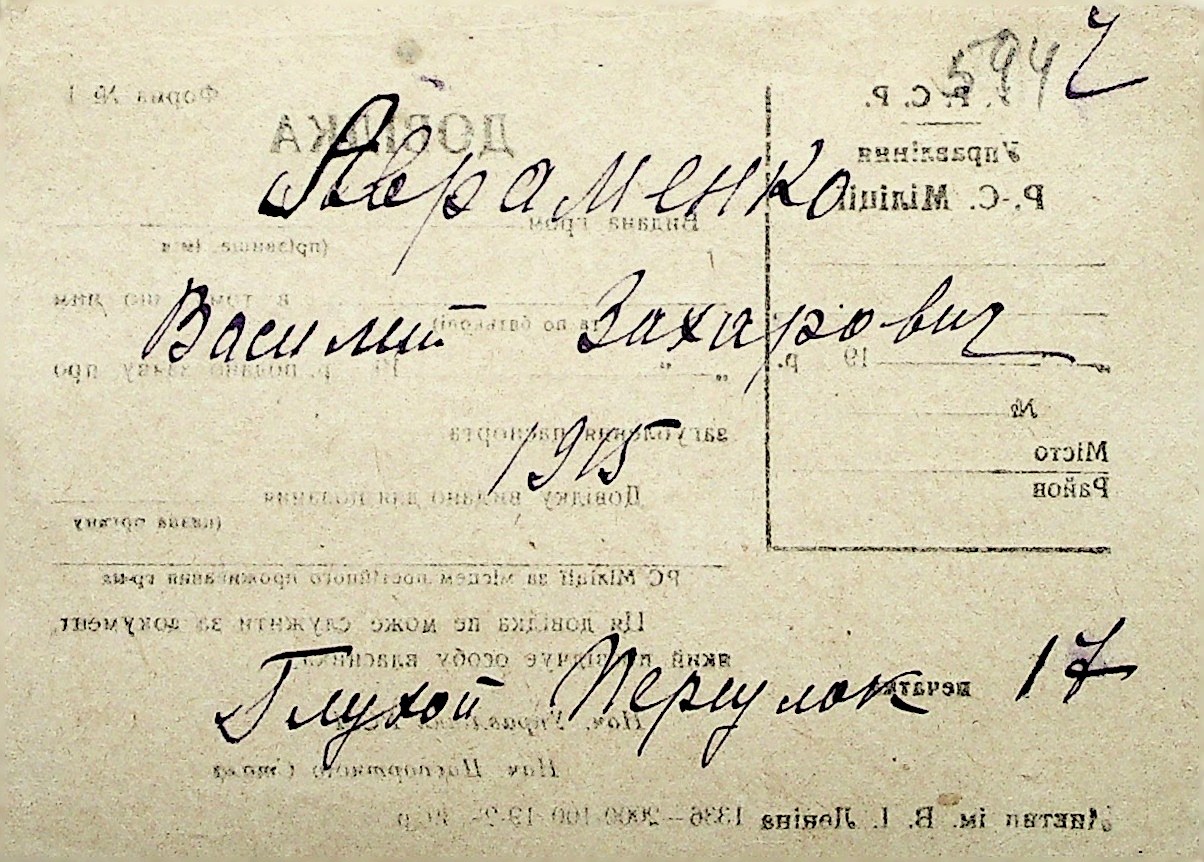 5944 2
Авраменко
Василий Захарович
1915
Глухой Переулок 17
Форма № 1
ДОВІДКА
Видана гром.
(прізвище, ім'я
та по батькові)
в тому, що ним
19 р. подано заяву про
загублення паспорта
Довідку видано для подання
(назва органу
РС Міліції за місцем постійного проживання гр-на
Ця довідка не може служити за документ,
який посвідчує особу власника.
Нач. Управління
Нач. Паспортного Стола
У. Р. С. Р.
Управління
Р.-С. Міліції
19 р.
№
Місто
Район
печатка
ім. В. І. Леніна 1336—2000